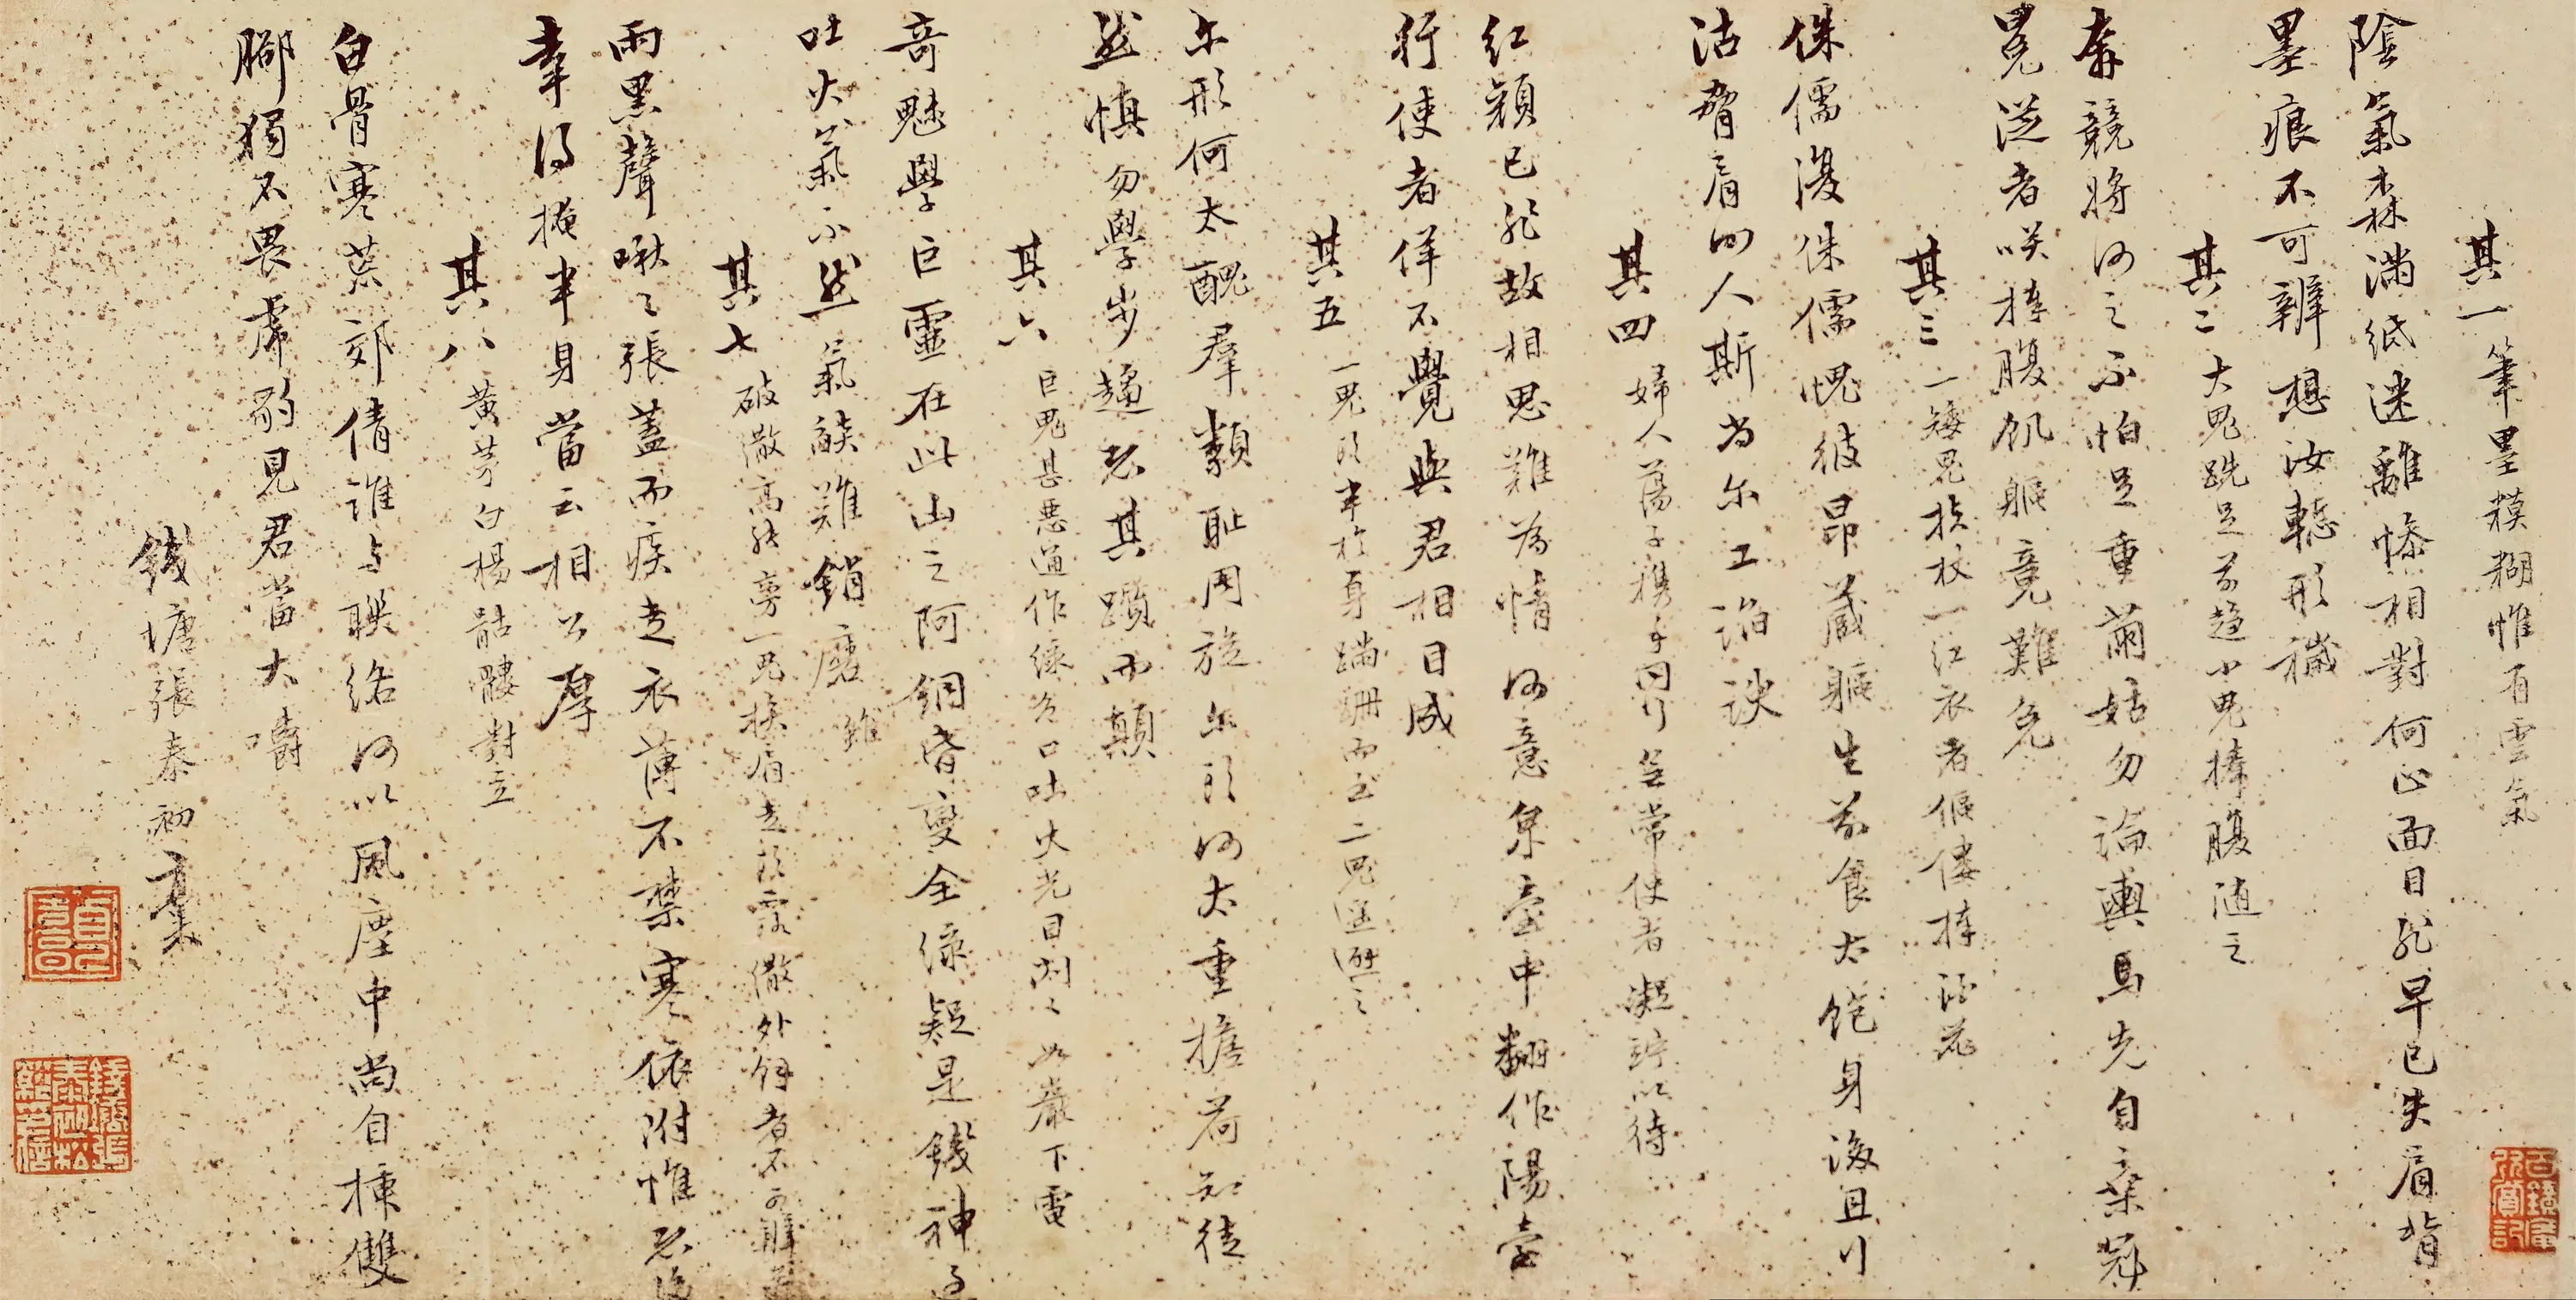 其一 筆墨糢糊惟有雲氣
陰氣森滿紙迷離慘相對何心面目非早已失眉背
墨痕不可辨想汝轉形穢
其二 大鬼跣足前趨小鬼捧腹隨之
奔競將何之不怕足重繭姑勿論輿馬先自棄冠
冕從者咲捧腹飢軀竟難免
其三 一矮鬼挾杖一紅衣者傴僂捧酒盞
侏儒復侏儒愧彼昂藏軀生前食太飽身後且行
沽脅肩向人斯為尔工諂諛
其四 婦人蕩子携手同行無常使者凝竚以待
紅顏已非故相思難為情何意泉臺中翻作陽臺
行使者佯不覺與君相目成
其五 一鬼頭半於身蹣跚而至二鬼避之
尔形何太醜羣類恥周旋尔頭何太重擔荷知徒
然慎勿學步趨恐其躓而顛
其六 巨鬼甚惡通作綠色口吐火光目閃閃如巖下電
奇魅學巨靈在此山之阿銅脊變全綠疑是錢神過
吐火氣不然氣燄難銷磨
其七 破繖高於旁一鬼挨肩走頭露繖外餘者不可辨
雨黑聲啾々張蓋而疾走衣薄不禁寒依附惟恐後
幸得掩半身當云相公厚
其八 黄茅白楊骷髏對立
白骨寒荒郊倩誰与聯絡何以風塵中尚自揀雙
腳獨不畏虎豹見君當大嚼
錢塘張泰初稾